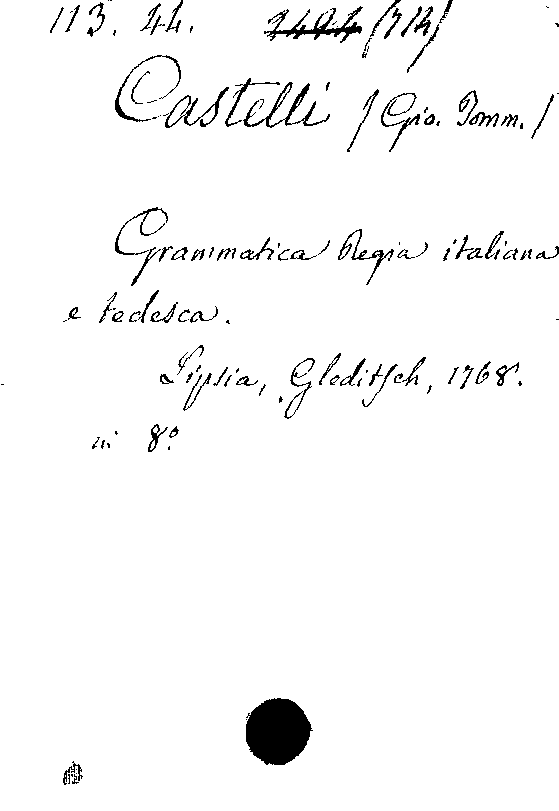 113. 44. 2494 (714)
Castelli / Gio. Tomm. /
Grammatica Regia italiana
e tedesca.
Lipsia, Gleditsch, 1768.
in 8º